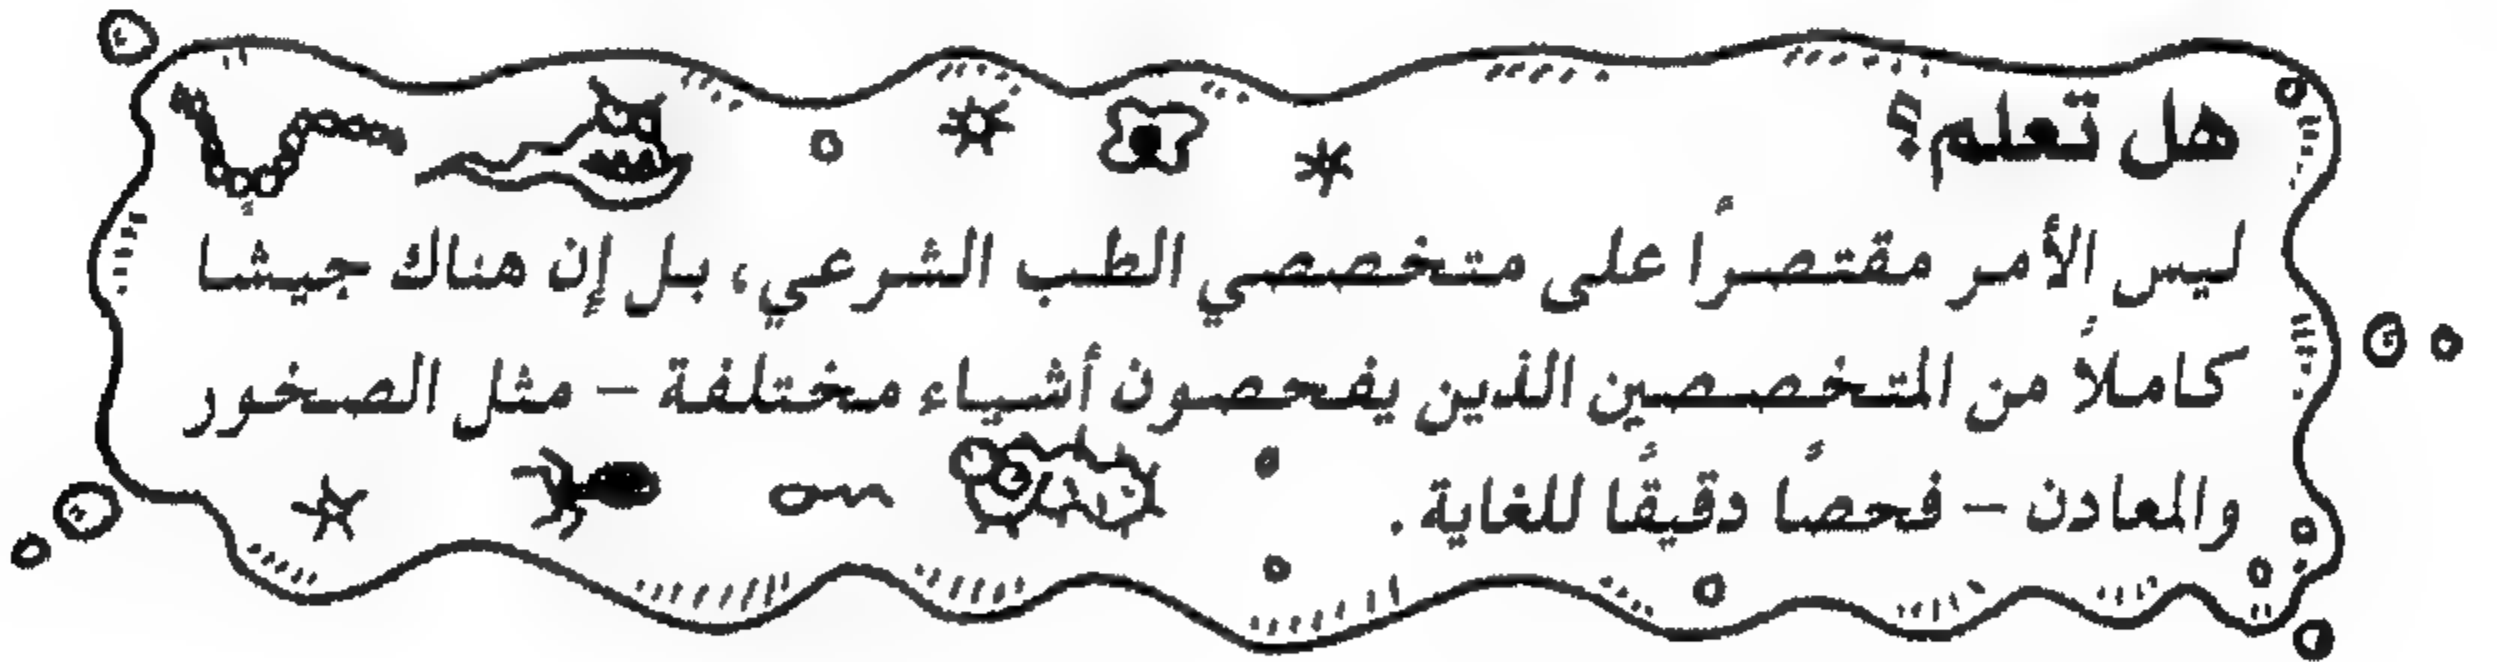 هل تعلم؟
ليس الأمر مقتصراً على متخصصي الطب الشرعي، بل إن هناك جيشا
كاملاً من المتخصصين الذين يفحصون أشياء مختلفة – مثل الصخور
والمعادن – فحصاً دقيقاً للغاية.